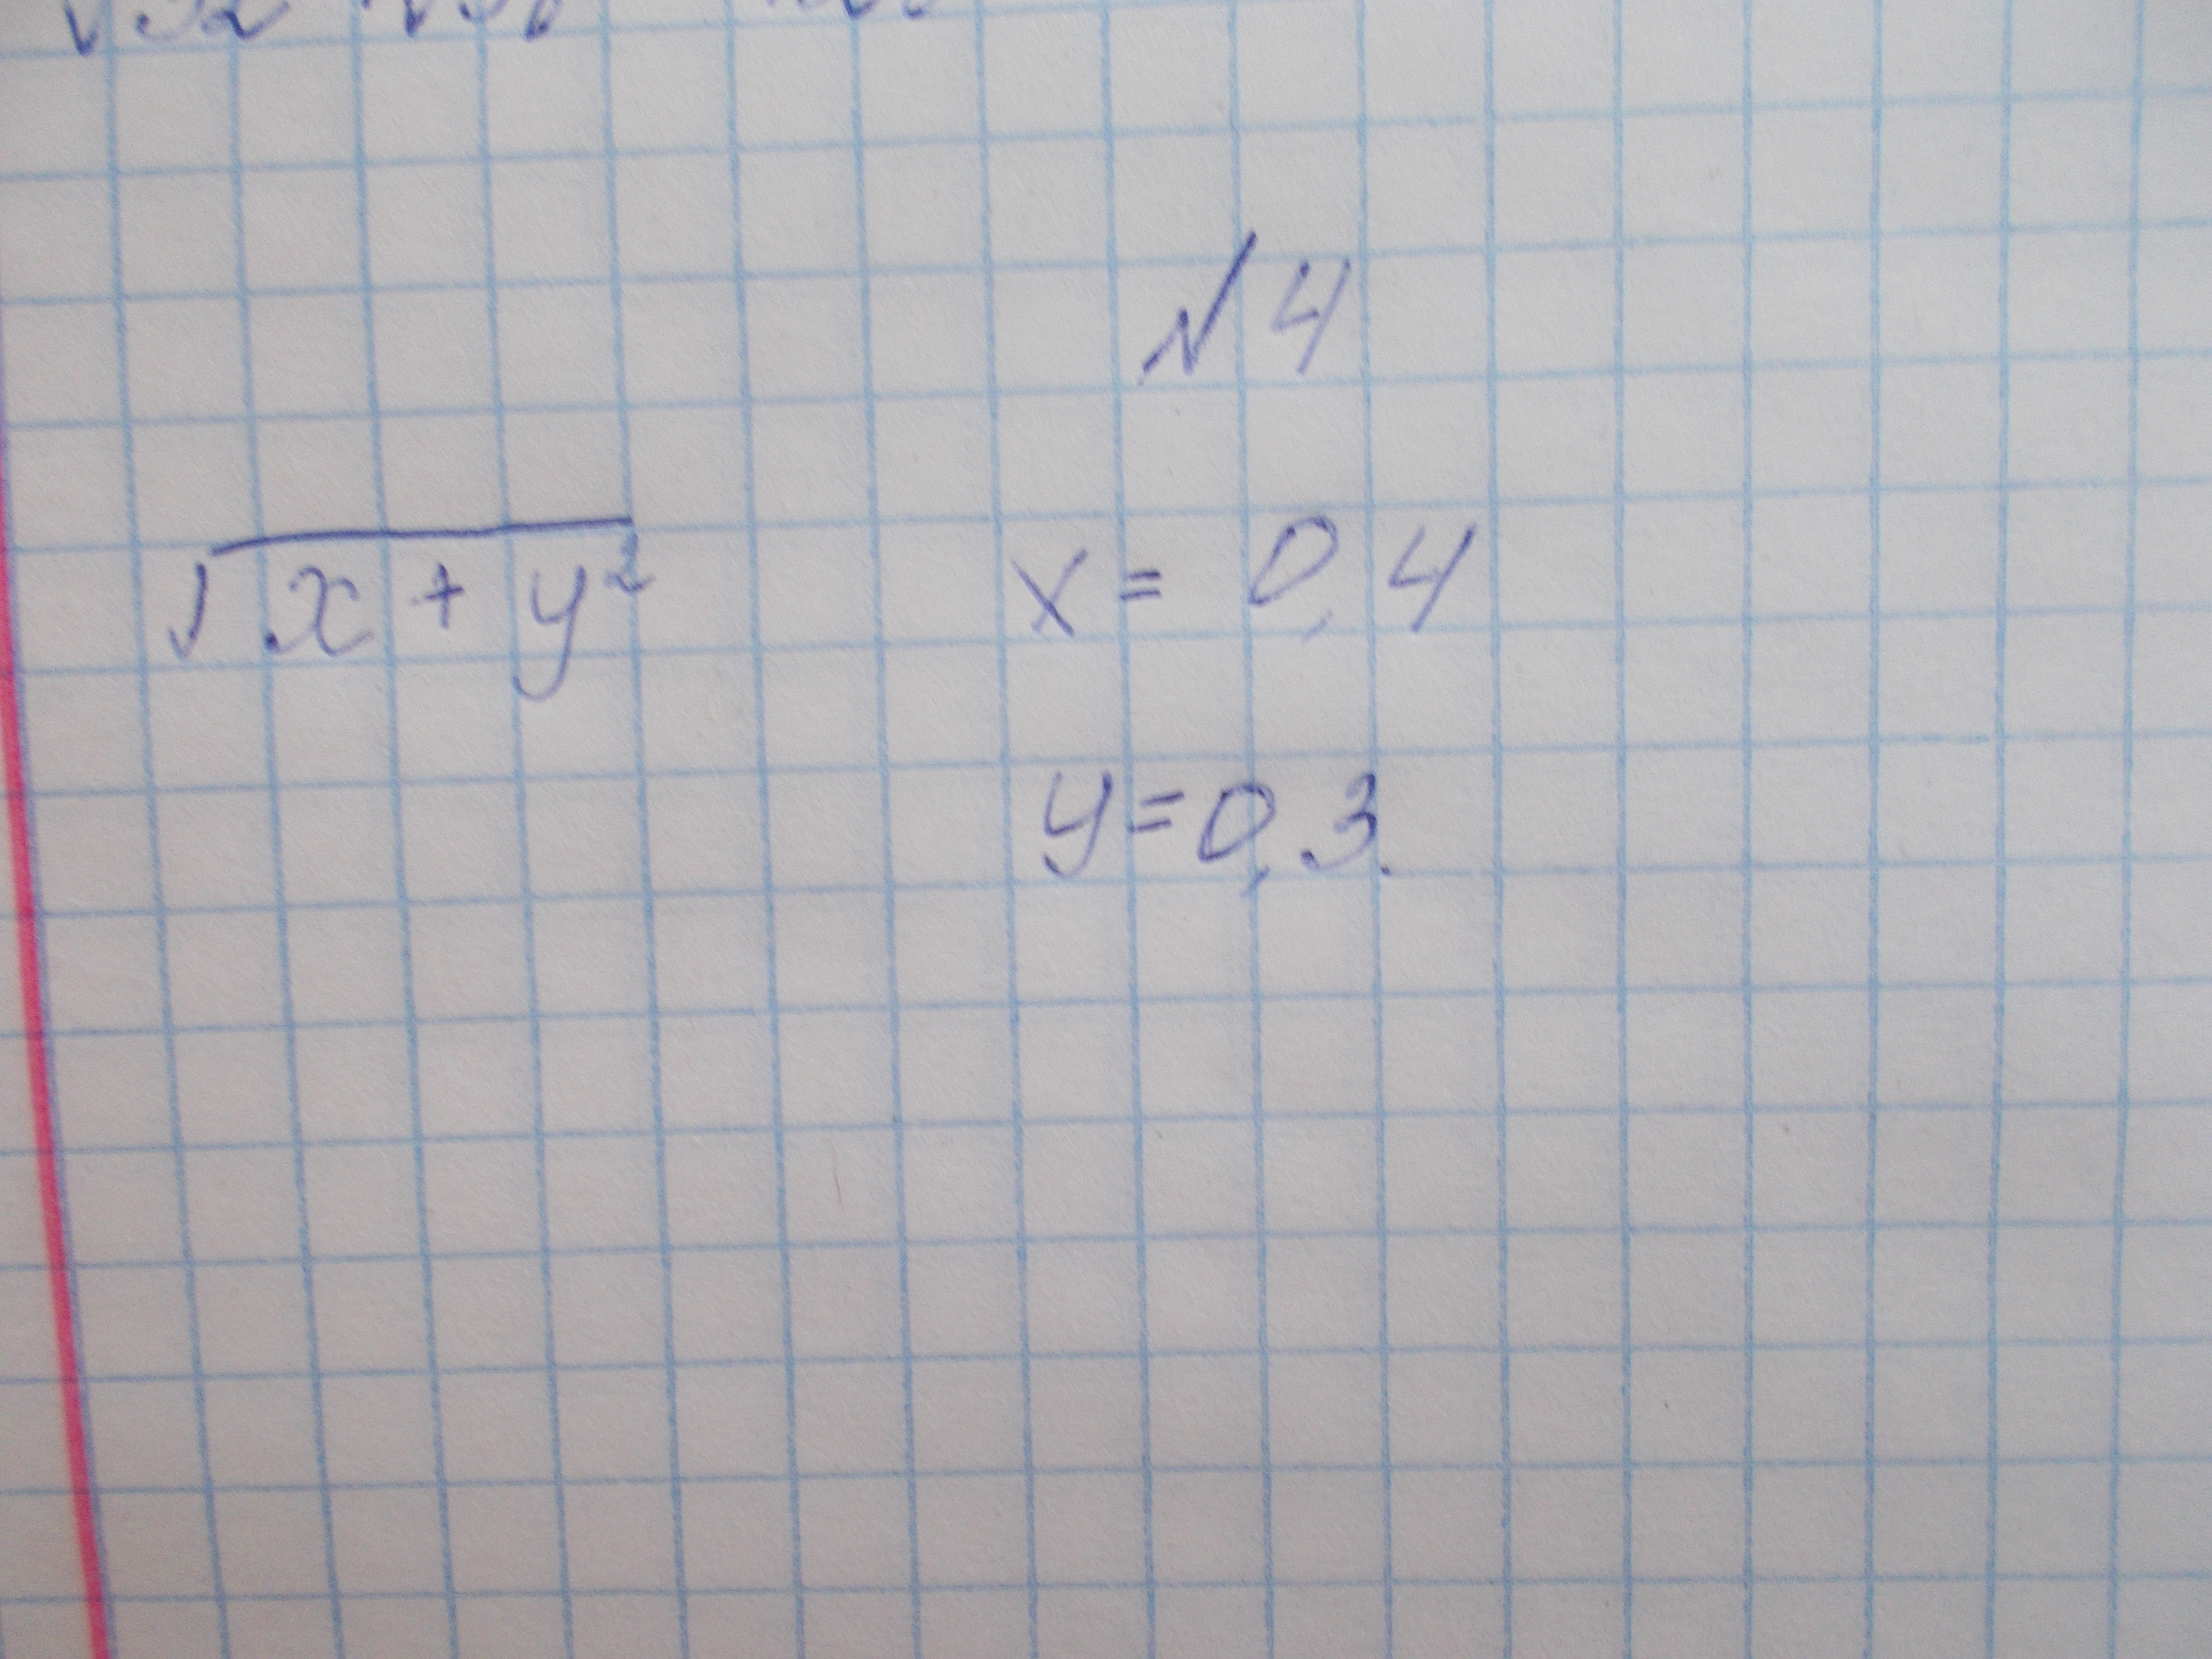 № 4
√x + y² x = 0,4
y = 0,3.